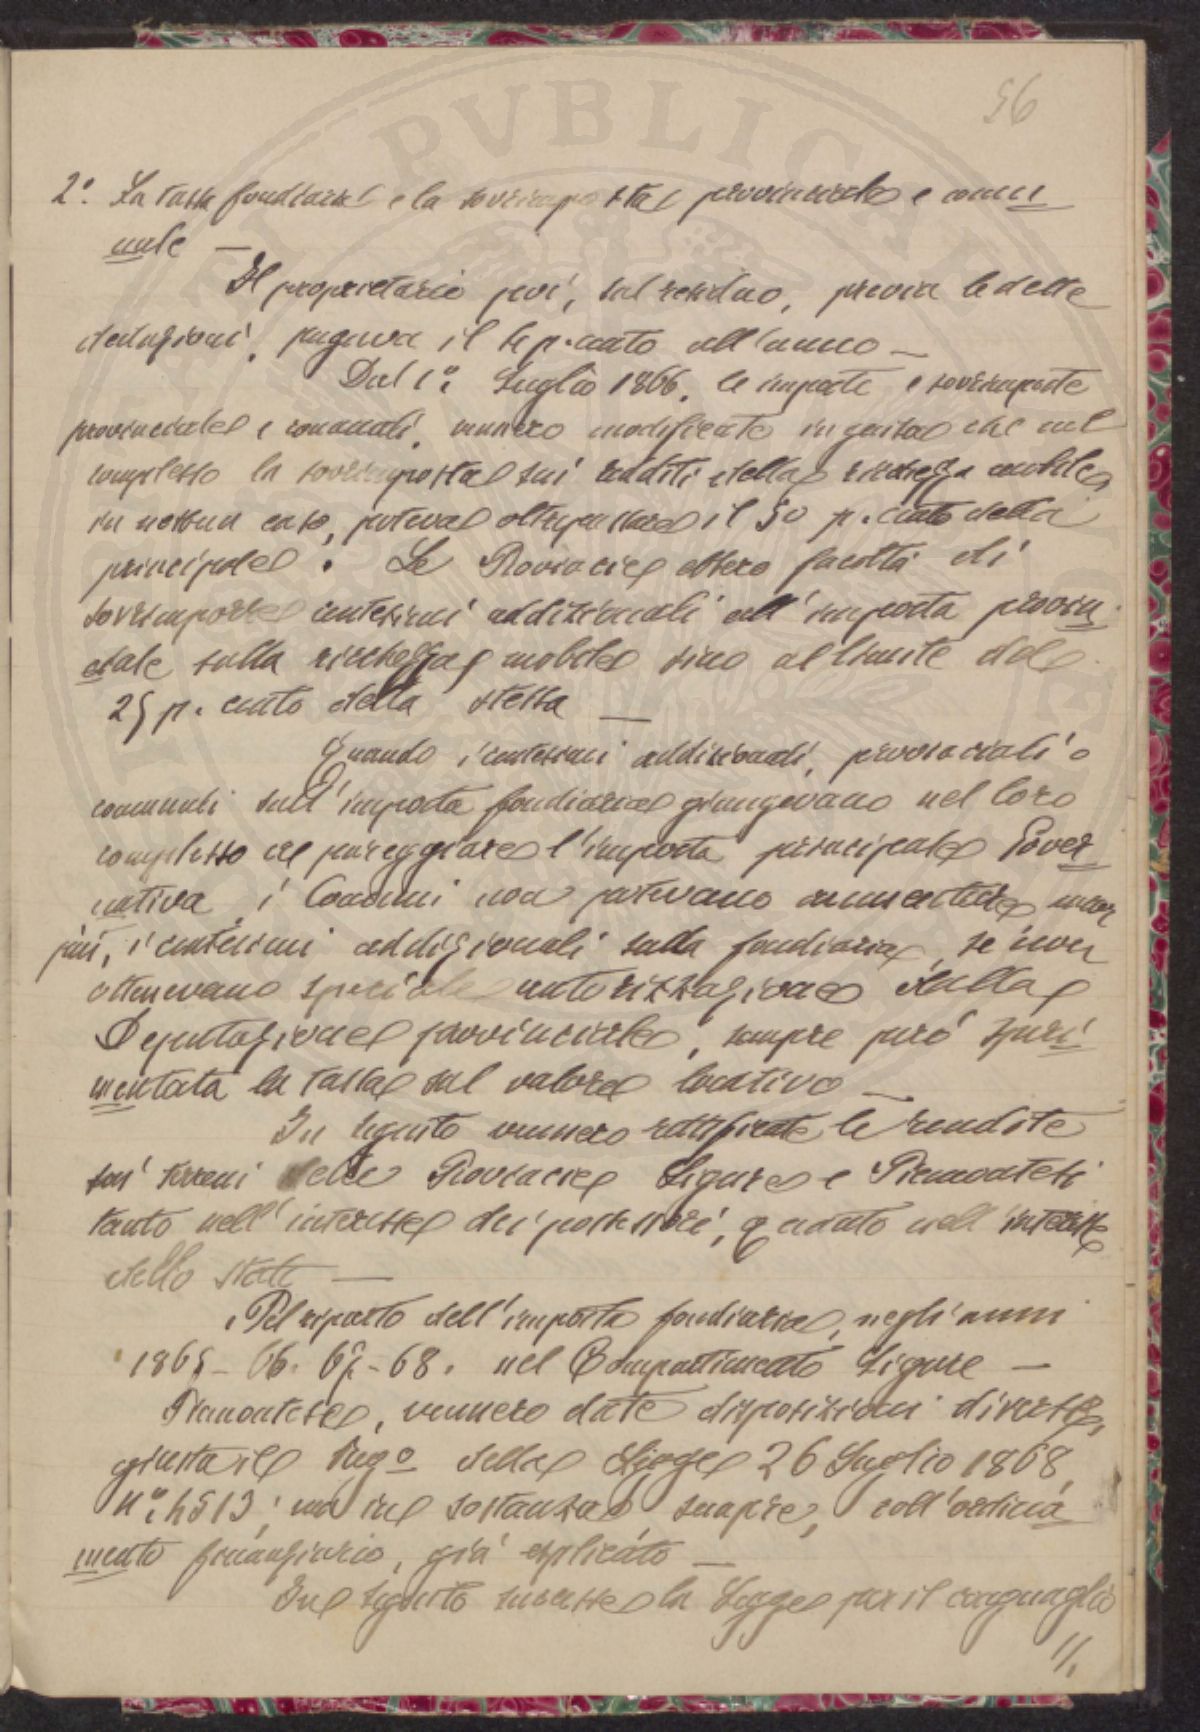 56
2º. La tassa fondiaria e la sovrimposta provinciale e comu
nale —
Il proprietario poi, sul residuo, previa le dette
deduzioni, pagava il 4 p. cento all'anno —
Dal 1º Luglio 1866, le imposte e sovrimposte
provinciali e comunali, vennero modificate in guisa che nel
complesso la sovrimposta sui redditi della ricchezza mobile,
in nessun caso, poteva oltrepassare il 50 p. cento della
principale. Le Provincie ebbero facoltà di
sovrimporre centesimi addizionali all'imposta provin
ciale sulla ricchezza mobile sino al limite del
25 p. cento della stessa —
Quando i centesimi addizionali, provinciali o
comunali sull'imposta fondiaria giungevano nel loro
complesso a pareggiare l'imposta principale Gover
nativa, i Comuni non potevano aumentare
più, i centesimi addizionali sulla fondiaria, se non
ottenevano speciale autorizzazione dalla
Deputazione provinciale, sempre però speri
mentata la tassa sul valore locativo —
In seguito vennero rettificate le rendite
sui terreni delle Provincie Liguri e Piemontesi
tanto nell'interesse dei possessori, quanto nell'interesse
dello stato —
Pel riparto dell'imposta fondiaria, negli anni
1865 - 66. 67 - 68. nel Compartimento Ligure —
Piemontese, vennero date disposizioni diverse,
giusta il Reg.º della Legge 26 Luglio 1868,
Nº. 4513; ma in sostanza sempre, coll'ordina
mento finanziario, già esplicato —
In seguito successe la Legge per il conguaglio
//.
PVBLICAE